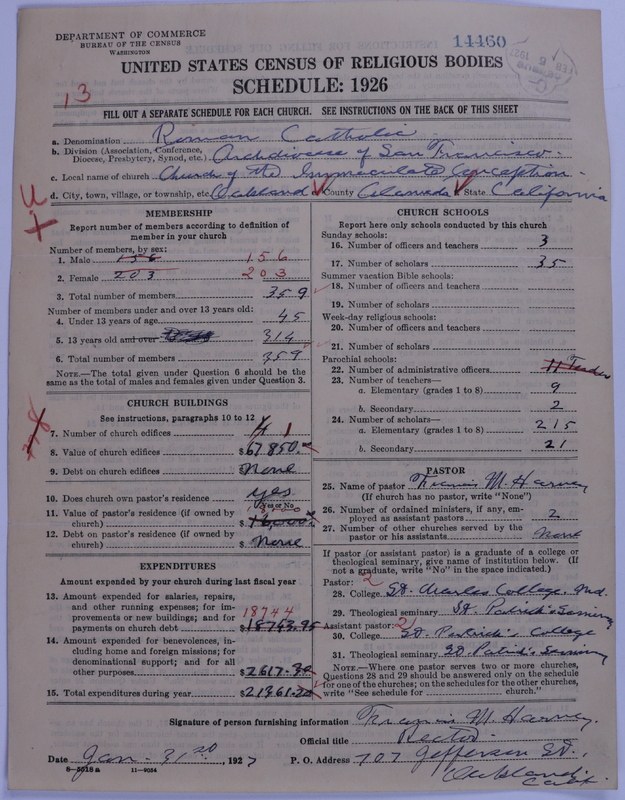 DEPARTMENT OF COMMERCE
BUREAU OF THE CENSUS
WASHINGTON
14460
UNITED STATES CENSUS OF RELIGIOUS BODIES
SCHEDULE: 1926
13
FILL OUT A SEPARATE SCHEDULE FOR EACH CHURCH. SEE INSTRUCTIONS ON THE BACK OF THIS SHEET
a. Denomination Roman Catholic
b. Division (Association, Conference, Diocese, Presbytery, Synod, etc.) Archdiocese of San Francisco.
c. Local name of church Church of the Immaculate Conception
d. City, town, village, or township, etc. Oakland County Alameda State California
MEMBERSHIP
Report number of members according to definition of member in your church
Number of members, by sex:
1. Male 156 156
2. Female 203 203
3. Total number of members 359
Number of members under and over 13 years old:
4. Under 13 years of age 45
5. 13 years old and over 314
6. Total number of members 359
NOTE.—The total given under Question 6 should be the same as the total of males and females given under Question 3.
CHURCH BUILDINGS
See instructions, paragraphs 10 to 12
7. Number of church edifices 1
8. Value of church edifices $67850.00
9. Debt on church edifices None
10. Does church own pastor's residence yes
Yes or No
11. Value of pastor's residence (if owned by church) $
12. Debt on pastor's residence (if owned by church) $ None
EXPENDITURES
Amount expended by your church during last fiscal year
13. Amount expended for salaries, repairs, and other running expenses; for improvements or new buildings; and for payments on church debt 18744 $18743.95
14. Amount expended for benevolences, including home and foreign missions; for denominational support; and for all other purposes $2617.30
15. Total expenditures during year $21361.
CHURCH SCHOOLS
Report here only schools conducted by this church
Sunday schools:
16. Number of officers and teachers 3
17. Number of scholars 35
Summer vacation Bible schools:
18. Number of officers and teachers
19. Number of scholars
Week-day religious schools:
20. Number of officers and teachers
21. Number of scholars
Parochial schools:
22. Number of administrative officers 11 Teachers
23. Number of teachers—
a. Elementary (grades 1 to 8) 9
b. Secondary 2
24. Number of scholars—
a. Elementary (grades 1 to 8) 215
b. Secondary 21
PASTOR
25. Name of pastor Francis M. Harvey
(If church has no pastor, write "None")
26. Number of ordained ministers, if any, employed as assistant pastors 2
27. Number of other churches served by the pastor or his assistants None
If pastor (or assistant pastor) is a graduate of a college or theological seminary, give name of institution below. (If not a graduate, write "No" in the space indicated.)
Pastor: 2
28. College St. Charles College, Md.
29. Theological seminary St. Patrick's Seminary
Assistant pastor: 2
30. College St. Patrick's College
31. Theological seminary St. Patrick's Seminary
NOTE.—Where one pastor serves two or more churches, Questions 28 and 29 should be answered only on the schedule for one of the churches; on the schedules for the other churches, write "See schedule for church."
Signature of person furnishing information Francis M. Harvey.
Official title Rector
Date Jan - 31st, 1927 P. O. Address 707 Jefferson St.,
8-5618 a 11-9054
Oakland, Calif.